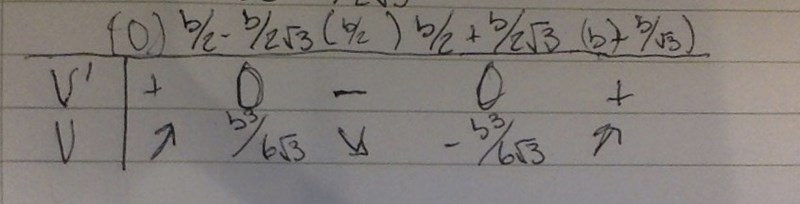 (0) b/2 - b/2√3 (b/2) b/2 + b/2√3 (b + b/√3)
V' + 0 - 0 +
V ↗ b³/6√3 ↘ -b³/6√3 ↗